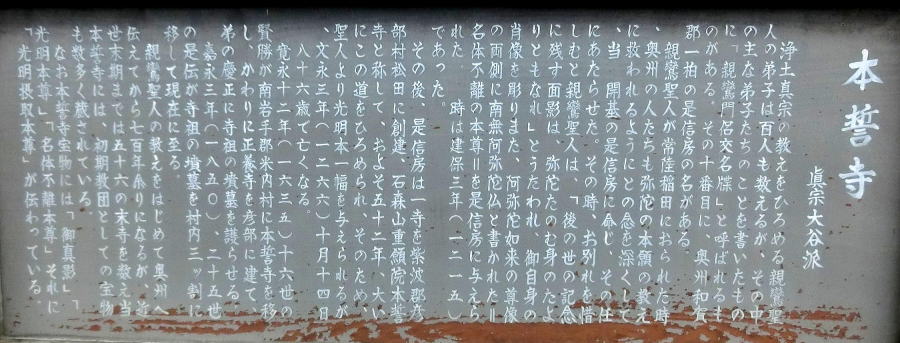 本誓寺
眞宗大谷派
浄土真宗の教えをひろめる親鸞聖
人の弟子は百人も数えるが、その中
の主な弟子たちのことを書いたもの
に「親鸞門侶交名牒」と呼ばれるも
のがある。その十番目に、奥州和賀
郡一柏の是信房の名がある。
親鸞聖人が常陸稲田におられた時
、奥州の人たちも弥陀の本願の教え
に救われるようにとの念を深くして
、当 開基の是信房に命じ、その任
にあたらせた。その時、お別れを惜
しむと親鸞聖人は、「後の世の記念
に残す面影は、弥陀たのむ身のたよ
りともなれ」とうたわれ、御自身の
肖像を彫りまた、阿弥陀如来の尊像
の両側に南無阿弥陀仏と書かれた=
名体不離の本尊=を是信房に与えら
れた 時は建保三年(一二一五)
であった。
その後、是信房は一寺を紫波郡彦
部村松田に創建、石森山重願院本誓
寺と弥して、およそ五十二年、大い
にこの道をひろめられ、そのため、
聖人より光明本一幅を与えられるが
、文永三年(一二六六)十月十四日
八十六歳で亡くなる。
寛永十二年(一六三五)十六世の
賢勝が南岩手郡米内村に本誓寺を移
し、かわりに正養寺を彦部に建て、
弟の慶正に寺祖の墳墓を護らせる。
嘉永三年(一八五〇)、二十五世
の是伝が寺祖の墳墓を村内三ッ割に
移して現在に至る。
親鸞聖人の教えをはじめて奥州へ
伝えてから七百年余りになるが、近
世末期までは五十六の末寺を数え当
本誓寺には、初期教団としての宝物
も数多く蔵されている。
なお本誓寺宝物には「御真影」「
光明本尊」「名体不離本尊」それに
「光明摂取本尊」が伝わっている。